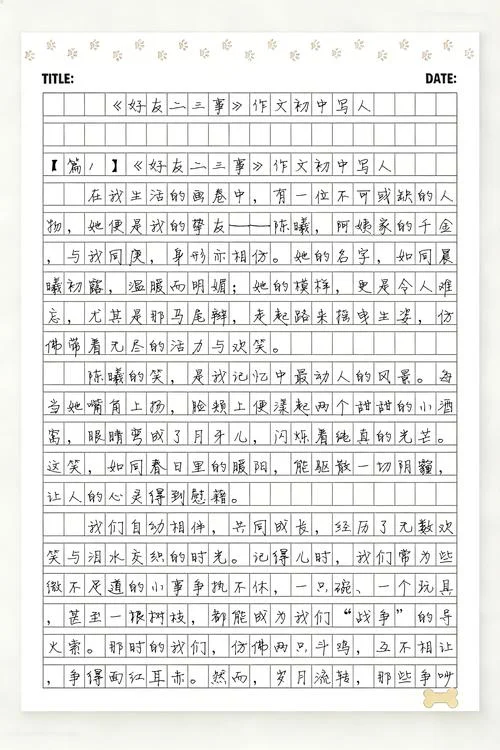 TITLE: DATE:
《好友二三事》作文初中写人
【篇1】《好友二三事》作文初中写人
在我生活的画卷中，有一位不可或缺的人
物，她便是我的挚友——陈曦，阿姨家的千金
，与我同庚，身形亦相仿。她的名字，如同晨
曦初露，温暖而明媚；她的模样，更是令人难
忘，尤其是那马尾辫，走起路来摇曳生姿，仿
佛带着无尽的活力与欢笑。
陈曦的笑，是我记忆中最动人的风景。每
当她嘴角上扬，脸颊上便漾起两个甜甜的小酒
窝，眼睛弯成了月牙儿，闪烁着纯真的光芒。
这笑，如同春日里的暖阳，能驱散一切阴霾，
让人的心灵得到慰藉。
我们自幼相伴，共同成长，经历了无数欢
笑与泪水交织的时光。记得儿时，我们常为些
微不足道的小事争执不休，一只碗、一个玩具
，甚至一根树枝，都能成为我们“战争”的导
火索。那时的我们，仿佛两只斗鸡，互不相让
，争得面红耳赤。然而，岁月流转，那些争吵